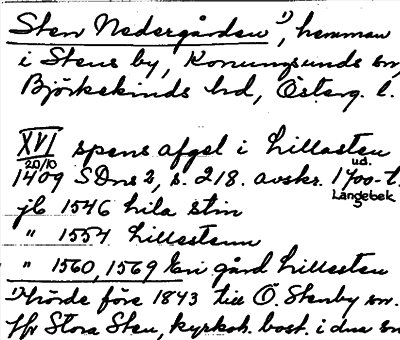 Sten Nedergården 1), hemman
i Stens by, Konungsunds sn,
Björkekinds hd, Österg. l.
XVI spens afgel i lillasten
20/10 ud.
1409 SDns 2, s. 218. avskr. 1700-t.
Langebek
jb 1546 lila stin
" 1554 lillestenn
" 1560, 1569 Een gård lillesten
1) Hörde före 1843 till Ö. Stenby sn.
Jfr Stora Sten, kyrkoh. bost. i dna sn